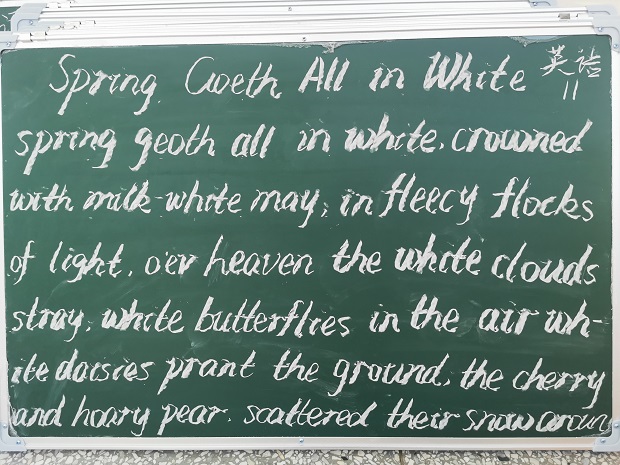 Spring Goeth All in White
英语
11
spring geoth all in white. crowned
with milk-white may, in fleecy flocks
of light, o'er heaven the white clouds
stray, white butterflies in the air wh-
ite daisies prant the ground, the cherry
and hoary pear. scattered their snow aroun